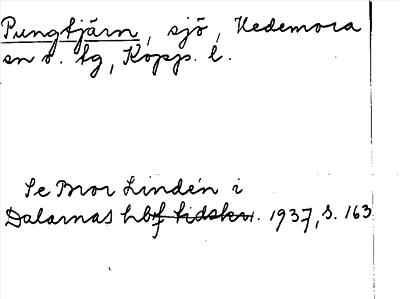 Pungtjärn, sjö, Hedemora
sn o. tg, Kopp. l.
Se Bror Lindén i
Dalarnas hbf tidskr. 1937, s. 163